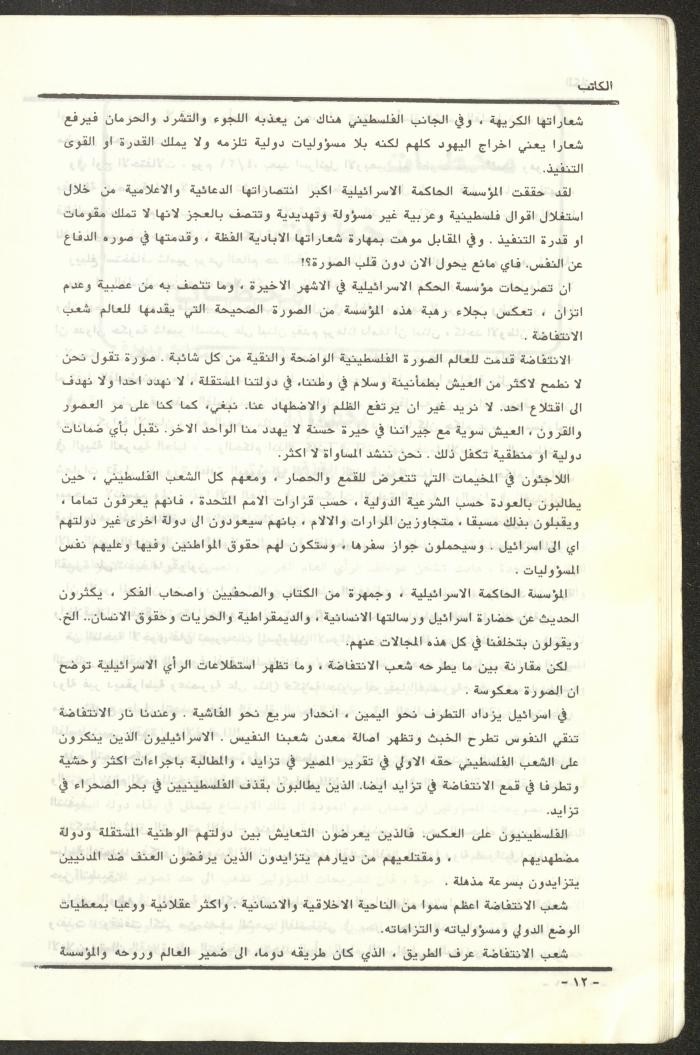 الكاتب
شعاراتها الكريهة ، وفي الجانب الفلسطيني هناك من يعذبه اللجوء والتشرد والحرمان فيرفع
شعارا يعني اخراج اليهود كلهم لكنه بلا مسؤوليات دولية تلزمه ولا يملك القدرة او القوى
التنفيذ.
لقد حققت المؤسسة الحاكمة الاسرائيلية اكبر انتصاراتها الدعائية والاعلامية من خلال
استغلال اقوال فلسطينية وعربية غير مسؤولة وتهديدية وتتصف بالعجز لانها لا تملك مقومات
او قدرة التنفيذ . وفي المقابل موهت بمهارة شعاراتها الابادية الفظة ، وقدمتها في صوره الدفاع
عن النفس. فاي مانع يحول الان دون قلب الصورة؟!
ان تصريحات مؤسسة الحكم الاسرائيلية في الاشهر الاخيرة ، وما تتصف به من عصبية وعدم
اتزان ، تعكس بجلاء رهبة هذه المؤسسة من الصورة الصحيحة التي يقدمها للعالم شعب
الانتفاضة .
الانتفاضة قدمت للعالم الصورة الفلسطينية الواضحة والنقية من كل شائبة . صورة تقول نحن
لا نطمح لاكثر من العيش بطمأنينة وسلام في وطننا، في دولتنا المستقلة ، لا نهدد احدا ولا نهدف
الى اقتلاع احد. لا نريد غير ان يرتفع الظلم والاضطهاد عنا. نبغي، كما كنا على مر العصور
والقرون ، العيش سوية مع جيراننا في حيرة حسنة لا يهدد منا الواحد الاخر. نقبل بأي ضمانات
دولية او منطقية تكفل ذلك . نحن ننشد المساواة لا اكثر.
اللاجئون في المخيمات التي تتعرض للقمع والحصار ، ومعهم كل الشعب الفلسطيني ، حين
يطالبون بالعودة حسب الشرعية الدولية ، حسب قرارات الامم المتحدة ، فانهم يعرفون تماما ،
ويقبلون بذلك مسبقا ، متجاوزين المرارات والالام ، بانهم سيعودون الى دولة اخرى غير دولتهم
اي الى اسرائيل . وسيحملون جواز سفرها ، وستكون لهم حقوق المواطنين وفيها وعليهم نفس
المسؤوليات .
المؤسسة الحاكمة الاسرائيلية ، وجمهرة من الكتاب والصحفيين واصحاب الفكر ، يكثرون
الحديث عن حضارة اسرائيل ورسالتها الانسانية ، والديمقراطية والحريات وحقوق الانسان.. الخ.
ويقولون بتخلفنا في كل هذه المجالات عنهم.
لكن مقارنة بين ما يطرحه شعب الانتفاضة ، وما تظهر استطلاعات الرأي الاسرائيلية توضح
ان الصورة معكوسة .
في اسرائيل يزداد التطرف نحو اليمين ، انحدار سريع نحو الفاشية . وعندنا نار الانتفاضة
تنقي النفوس تطرح الخبث وتظهر اصالة معدن شعبنا النفيس . الاسرائيليون الذين ينكرون
على الشعب الفلسطيني حقه الاولي في تقرير المصير في تزايد ، والمطالبة باجراءات اكثر وحشية
وتطرفا في قمع الانتفاضة في تزايد ايضا. الذين يطالبون بقذف الفلسطينيين في بحر الصحراء في
تزايد.
الفلسطينيون على العكس. فالذين يعرضون التعايش بين دولتهم الوطنية المستقلة ودولة
مضطهديهم ، ومقتلعيهم من ديارهم يتزايدون الذين يرفضون العنف ضد المدنيين
يتزايدون بسرعة مذهلة .
شعب الانتفاضة اعظم سموا من الناحية الاخلاقية والانسانية . واكثر عقلانية ووعيا بمعطيات
الوضع الدولي ومسؤولياته والتزاماته.
شعب الانتفاضة عرف الطريق ، الذي كان طريقه دوما، الى ضمير العالم وروحه والمؤسسة
- ١٢ -